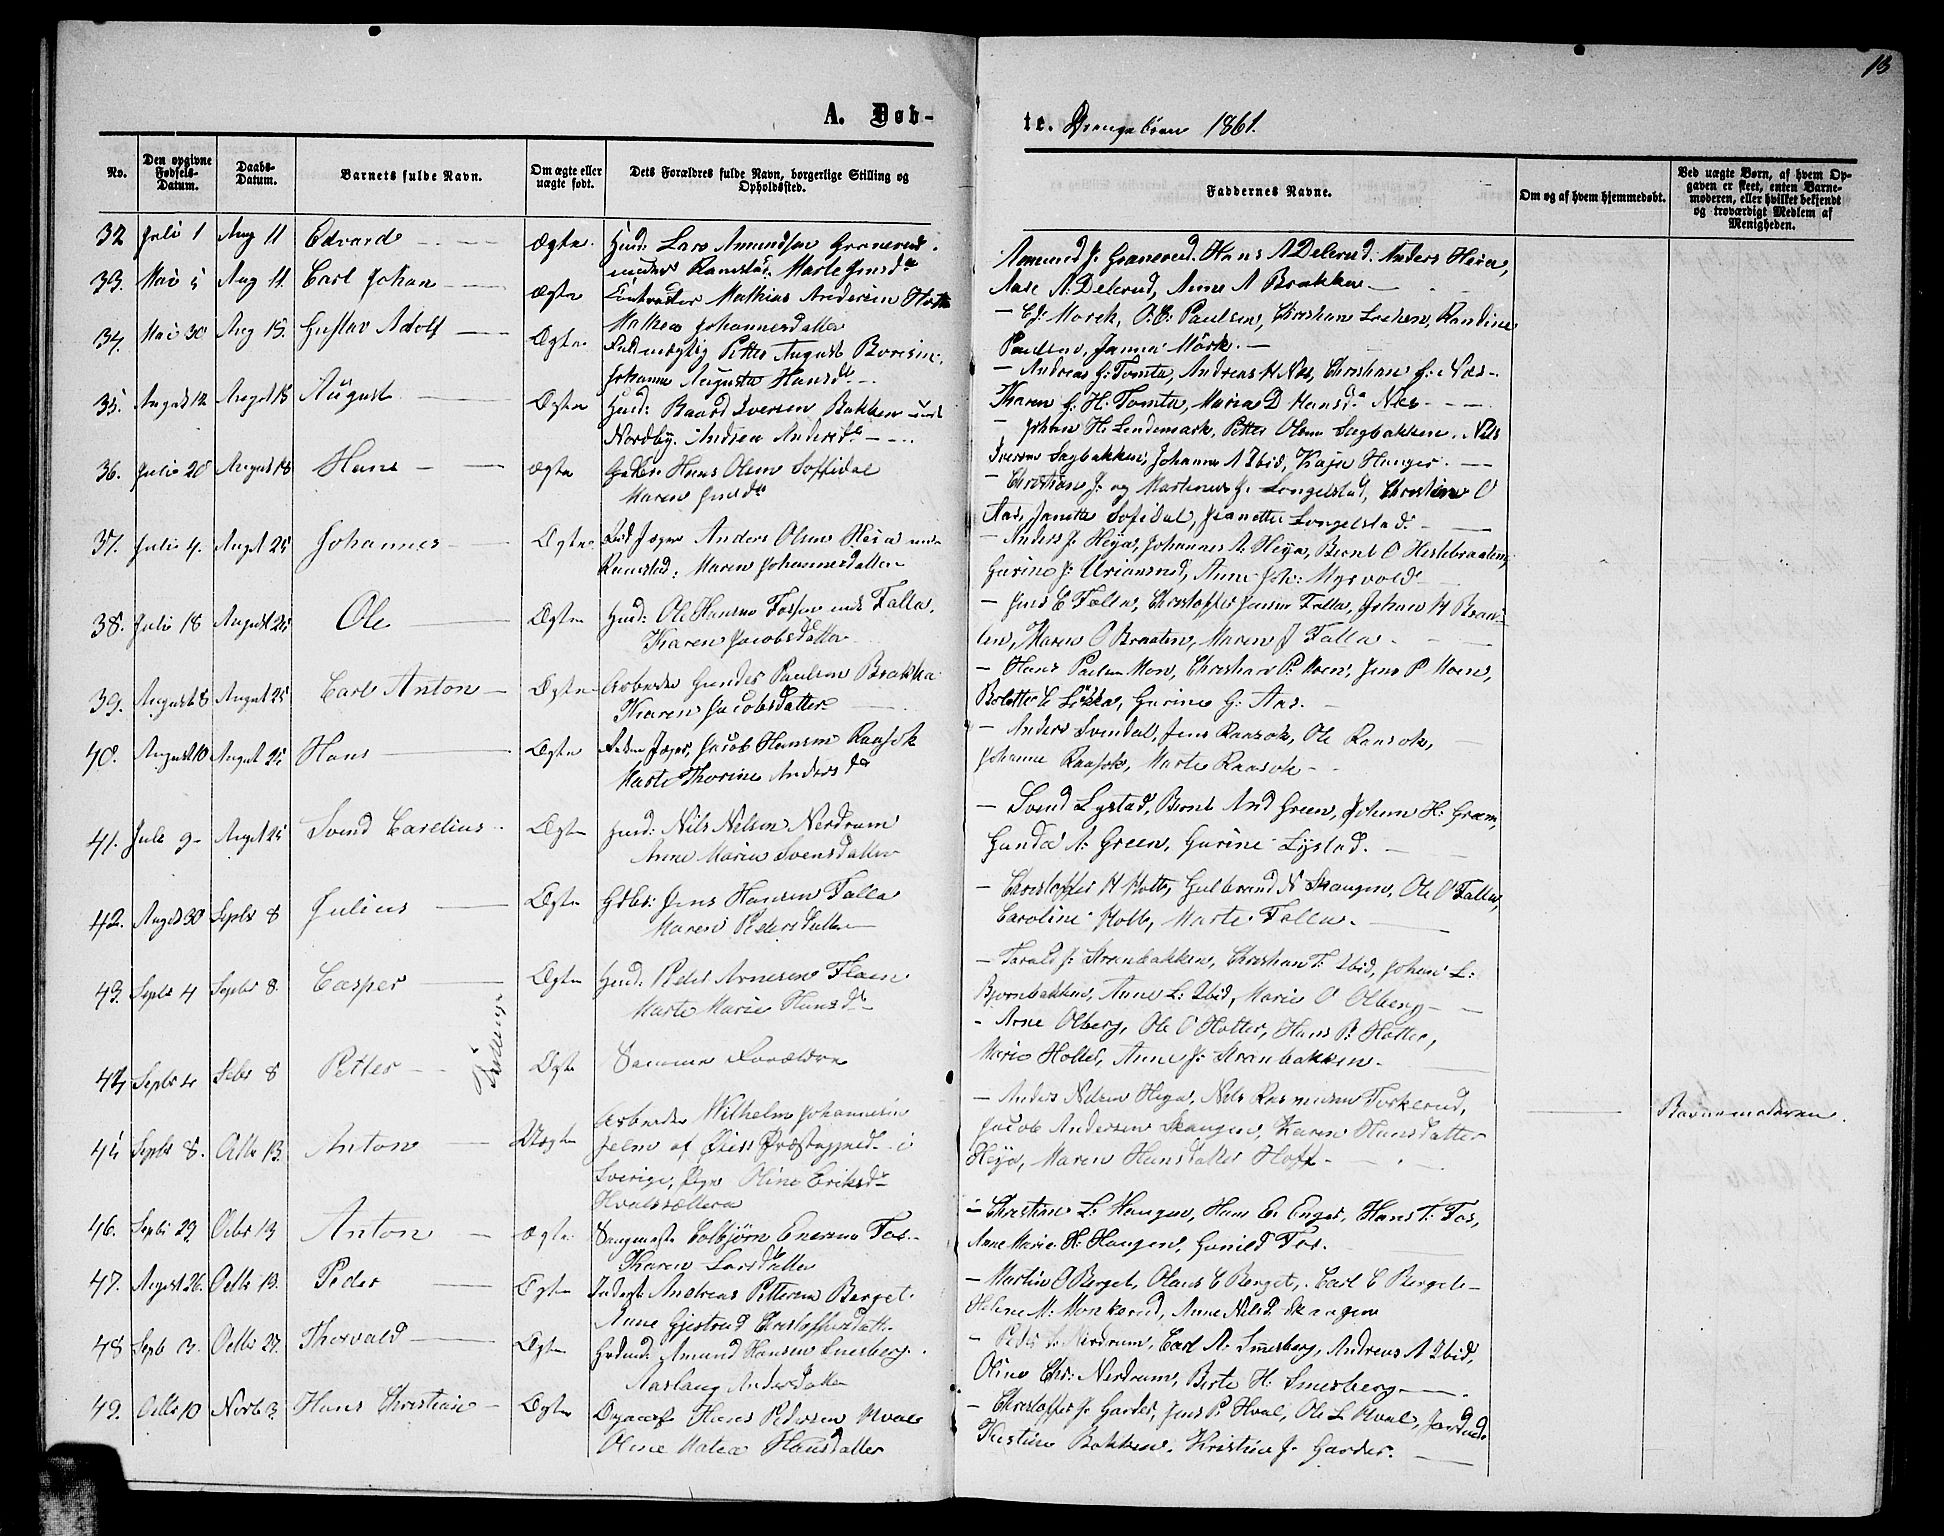 13
A. Døb-
te. Drengebørn 1861.
No.
Den opgivne Fødsels-Datum.
Daabs-Datum.
Barnets fulde Navn.
Om ægte eller uægte født.
Dets Forældres fulde Navn, borgerlige Stilling og Opholdssted.
Faddernes Navne.
Om og af hvem hjemmedøbt.
Ved uægte Børn, af hvem Opgaven er skeet, enten Barnemoderen, eller hvilket bekjendt og troværdigt Medlem af Menigheden.
32 Juli 1 Aug 11 Edvard Ægte Husd: Lars Amundsen Granerud
under Ramstad. Marte Jensd
Amund J. Granerud, Hans A Delerud, Anders Heia,
Aase A. Delerud, Anne A Brakken
33. Mai 5 Aug 11. Carl Johan Ægte Mathias Andersen
Mathea Johannesdatter
C J: Mørch, O. C: Paulsen, Christian Lochen, Randine
Paulsen, Janna Mørk.
34. Mai 30 Aug 15. Gustav Adolf Ægte Fuldmægtig Petter August
Johanne Augusta Hansd
Andreas G: Tomta, Andreas H Næs, Christian G: Næs
Karen G. H. Tomta, Maria D Hansd Næs
35. August 12 August 18 August Ægte Husd: Baard Iversen Bakken
Nordby. Andrea Andersd
Johan H. Lundemark, Petter Olsen Sagbakken, Nils
Iversen Sagbakken, Johanne A Ibid, Kaja Hunger.
36. Julie 20 August 18 Hans ægte Gdbr: Hans Olsen Soffidal
Maren Jensd
Christian J. og Martinus J. Longelstad, Christian O
Aas, Janette Sofidal, Jeanette Longelstad.
37. Julie 4. Augst 25 Johannes Ægte Anders Olsen Heia
Ramstad, Maren Johannesdatter
Anders J. Heya, Johannes A. Heya, Bernt O Hestebraaten,
Gurine J. Urianrud, Anne Joh: Myrvold
38. Julie 18 August 25 Ole Ægte Husd: Ole Hansen Fossen under Falla.
Karen Jacobsdatter
Jens C Falla, Christoffer Jensen Falla, Johan H Braa-
ten, Karen O Braaten, Maren J Falla.
39. August 8 August 25 Carl Anton Ægte Arbeider Gunder Paulsen Brakka
Karen Jacobsdatter
Hans Paulsen Moen, Christian P. Moen, Jens P Moens,
Bolette C Løkka, Gurine G. Aas.
40. August 10 August 25 Hans Ægte Jacob Hansen Raasok
Marte Thorine Andersd
Anders Svendal, Jens Raasok, Ole Raasok,
Johanne Raasok, Marte Raasok
41. Julie 9 Augst 25 Svend Carelius Ægte Husd: Nils Nilsen Nerdrum
Anne Marie Svensdatter
Svend Lystad, Bernt And Green, Johan H. Green,
Gunda A. Green, Gurine Lystad.
42. Augst 30 Septbr 8 Julius Ægte Gdbr: Jens Hansen Falla
Maren Pedersdatter
Christoffer H Holt, Gulbrand N Skaugen, Ole O Falla,
Caroline Holt, Marte Falla.
43. Septbr 4 Septbr 8. Casper Ægte Husd: Peder Arnesen Floen
Marte Marie Hansd
Torald J. Strandbakken, Christian T. Ibid, Johan L:
Bjørnbakken, Anne L: Ibid, Marie O Olberg
Tvillinger
44 Septbr 4 Sebr 8 Petter Ægte Samme Forældre
Arne Olberg, Ole O Holter, Hans P. Holter,
Marie Holter, Anne J. Stranbakken.
45 Septbr 8. Octbr 13. Anton Uægte Arbeider Wilhelm Johannesen
Præstegjeld i
Sverige, Pige Oline Eriksd
Hvalssætteren
Anders Nilsen Heya, Nils Rasmussen Torkerud,
Jacob Andersen Skaugen, Karen Hansdatter
Heya, Maren Hansdatter Hoff.
Barnemoderen.
46. Septbr 29 Octbr 13 Anton Ægte Saugmester Colbjørn Enersen Fos
Karen Larsdatter
Christian L. Haugen, Hans E. Enger, Hans T. Fos,
Anne Marie H. Haugen, Gunild Fos.
47. August 26. Octbr 13. Peder Ægte Inderst Andreas Pettersen Berget.
Anne Gjertrud Christoffersdatt
Martin O Berget, Olaus C Berget, Carl C Berget
Helene M. Monkerud, Anne Nilsd. Skaugen
48 Septb 13. Octbr 27. Thorvald Ægte Amund Hansen Smesberg.
Aaslaug Andersdatter
Peder L. Nerdrum, Carl A. Smesberg, Andreas A Ibid,
Oline Chr: Nerdrum, Berte H. Smesberg
49. Octbr 10 Novbr 3. Hans Christian Ægte Hans Pedersen Hval
Oline Matea Hansdatter
Christoffer J. Garder, Jens P. Hval, Ole L Hval,
Kristine Bakken, Kristine J. Garder.